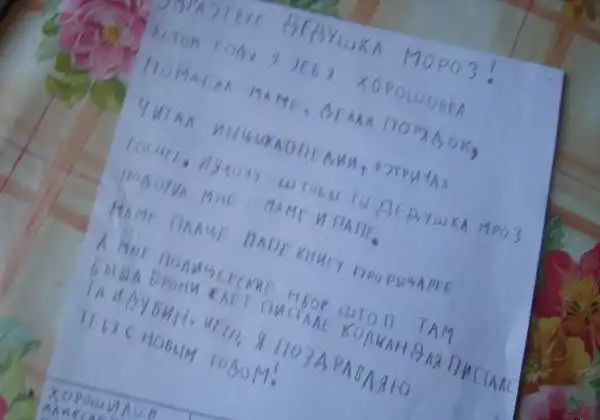 ЗДРАЗТВУЕ ДЕДУШКА МОРОЗ!
ЭТОМ ГОДУ Я ЗЕБЯ ХОРОШОВЕЛ
ПОМАГАЛ МАМЕ, ДЕЛАЛ ПОРЯДОК,
ЧИТАЛ ИНЦИКЛОПЕДИИ, ВТРИЧАЛ
ГОСТЕЙ. И Я ХОЧУ ШТОБЫ ТЫ ДЕДУШКА МРОЗ
ПОДОРИЛ МНЕ МАМЕ И ПАПЕ.
МАМЕ ПЛАЧЕ ПАПЕ КНИГУ ПРО РЫЦАРЕЕ
А МНЕ ПОЛИЦЕЕСКИЕ НБОР ШТО П ТАМ
БЫЛА БРОНИ ЖЛЕТ ПИСТАЛЕ КОЛМАН ДЛЯ ПИСТАЛЕ
ТА И ДУБИН. Я ПОЗДРАВЛЯЮ
ТЕБЯ С НОВЫМ ГОДОМ!
ХОРОШИЛОВ